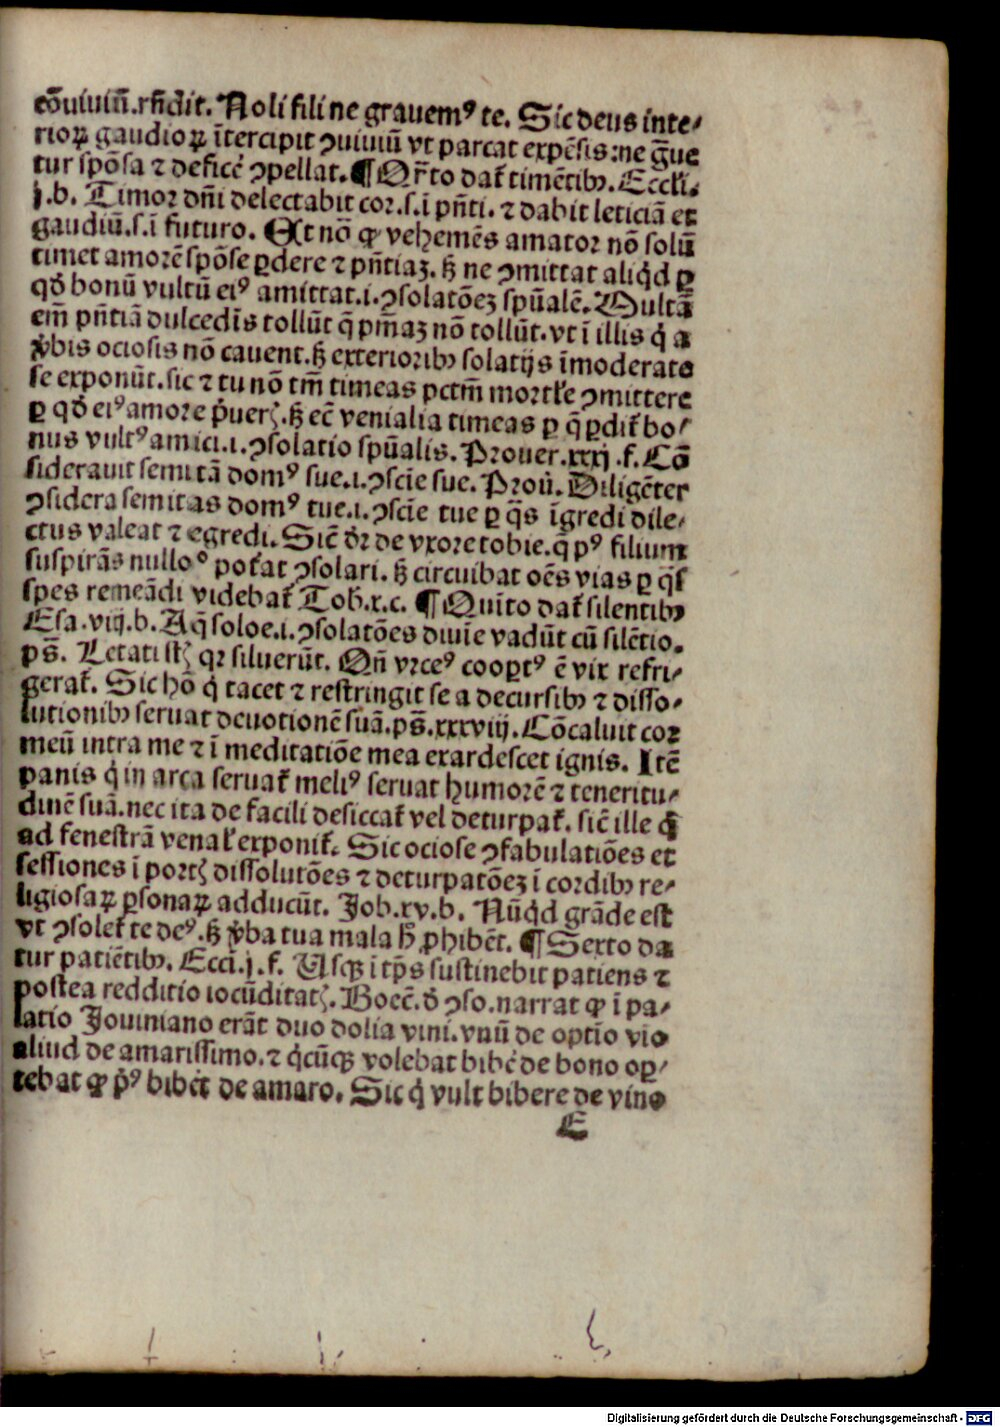 cōuiuiū.rn̄dit. Noli fili ne grauemꝰ te. Sic deus inte⸗
rioꝝ gaudioꝝ ītercipit ꝯuiuiū vt parcat expēsis:ne ḡue
tur spōsa ⁊ deficē ꝯpellat. ¶ Qr̄to dat̄ timētibꝫ. Eccłi.
j.b. Timor dn̄i delectabit cor.s.ī pn̄ti. ⁊ dabit leticiā et
gaudiū.s.ī futuro. Et nō ꝙ vehemēs amator nō solū
timet amorē spōse ꝑdere ⁊ pn̄tiaꝫ. sꝫ ne ꝯmittat aliq̇d ꝑ
qd̄ bonū vultū eiꝰ amittat.i.ꝯsolatōeꝫ spūalē. Multā
em̄ pn̄tiā dulcedīs tollūt q̄ pm̄aꝫ nō tollūt. vt ī illis q̇ a
v̇bis ociosis nō cauent. sꝫ exterioribꝫ solatijs īmoderate
se exponūt. sic ⁊ tu nō tm̄ timeas pctm̄ mortłe ꝯmittere
ꝑ qd̄ eiꝰ amore ṗuerꝭ. sꝫ ec̄ venialia timeas ꝑ q̄ ꝑdit̄ bo⸗
nus vultꝰ amici.i.ꝯsolatio spūalis. Prouer.xxxj.f. Cō
siderauit semitā domꝰ sue.i.ꝯscīe sue. Prou̇. Diligēter
ꝯsidera semitas domꝰ tue.i.ꝯscīe tue ꝑ q̄s īgredi dile⸗
ctus valeat ⁊ egredi. Sic̄ dr̄ de vxore tobie. q̄ pꝰ filium
suspirās nulloº pot̄at ꝯsolari. sꝫ circuibat oēs vias ꝑ q̄s
spes remeādi videbat̄ Tob̄.x.c. ¶ Quīto dat̄ silentibꝫ
Esa.viij.b. Aq̄ soloe.i.ꝯsolatōes diuīe vadūt cū silētio.
pš. Letati st̄ꝭ qꝛ siluerūt. Qn̄ vrceꝰ cooꝑtꝰ ē vix refri⸗
gerat̄. Sic hō q̇ tacet ⁊ restringit se a decursibꝫ ⁊ disso⸗
lutionibꝫ seruat deuotionē suā. pš.xxxviij. Cōcaluit cor
meū intra me ⁊ ī meditatiōe mea exardescet ignis. Itē
panis q̇ in arca seruat̄ meliꝰ seruat humorē ⁊ teneritu⸗
dinē suā. nec ita de facili desiccat̄ vel deturpat̄. sic̄ ille q̇
ad fenestrā venał exponit̄. Sic ociose ꝯfabulatiōes et
sessiones ī portꝭ dissolutōes ⁊ deturpatōeꝫ ī cordibꝫ re⸗
ligiosaꝝ ꝑsonaꝝ adducūt. Job.xv.b. Nūq̇d grāde est
vt ꝯsolet̄ te deꝰ. sꝫ v̇ba tua mala h̄ ꝓhibēt. ¶ Sexto da
tur patiētibꝫ. Ecci.j.f. Usqꝫ ī tp̄s sustinebit patiens ⁊
postea redditio iocūditatꝭ. Boec̄. d̄ ꝯso. narrat ꝙ ī pa⸗
latio Jouiniano erāt duo dolia vini. vnū de optīo vio
aliud de amarissimo. ⁊ q̇cūqꝫ volebat bibe᷑ de bono oꝑ⸗
tebat ꝙ ṗꝰ bibe᷑t de amaro. Sic q̇ vult bibere de vino
E
Digitalisierung gefördert durch die Deutsche Forschungsgemeinschaft - DFG